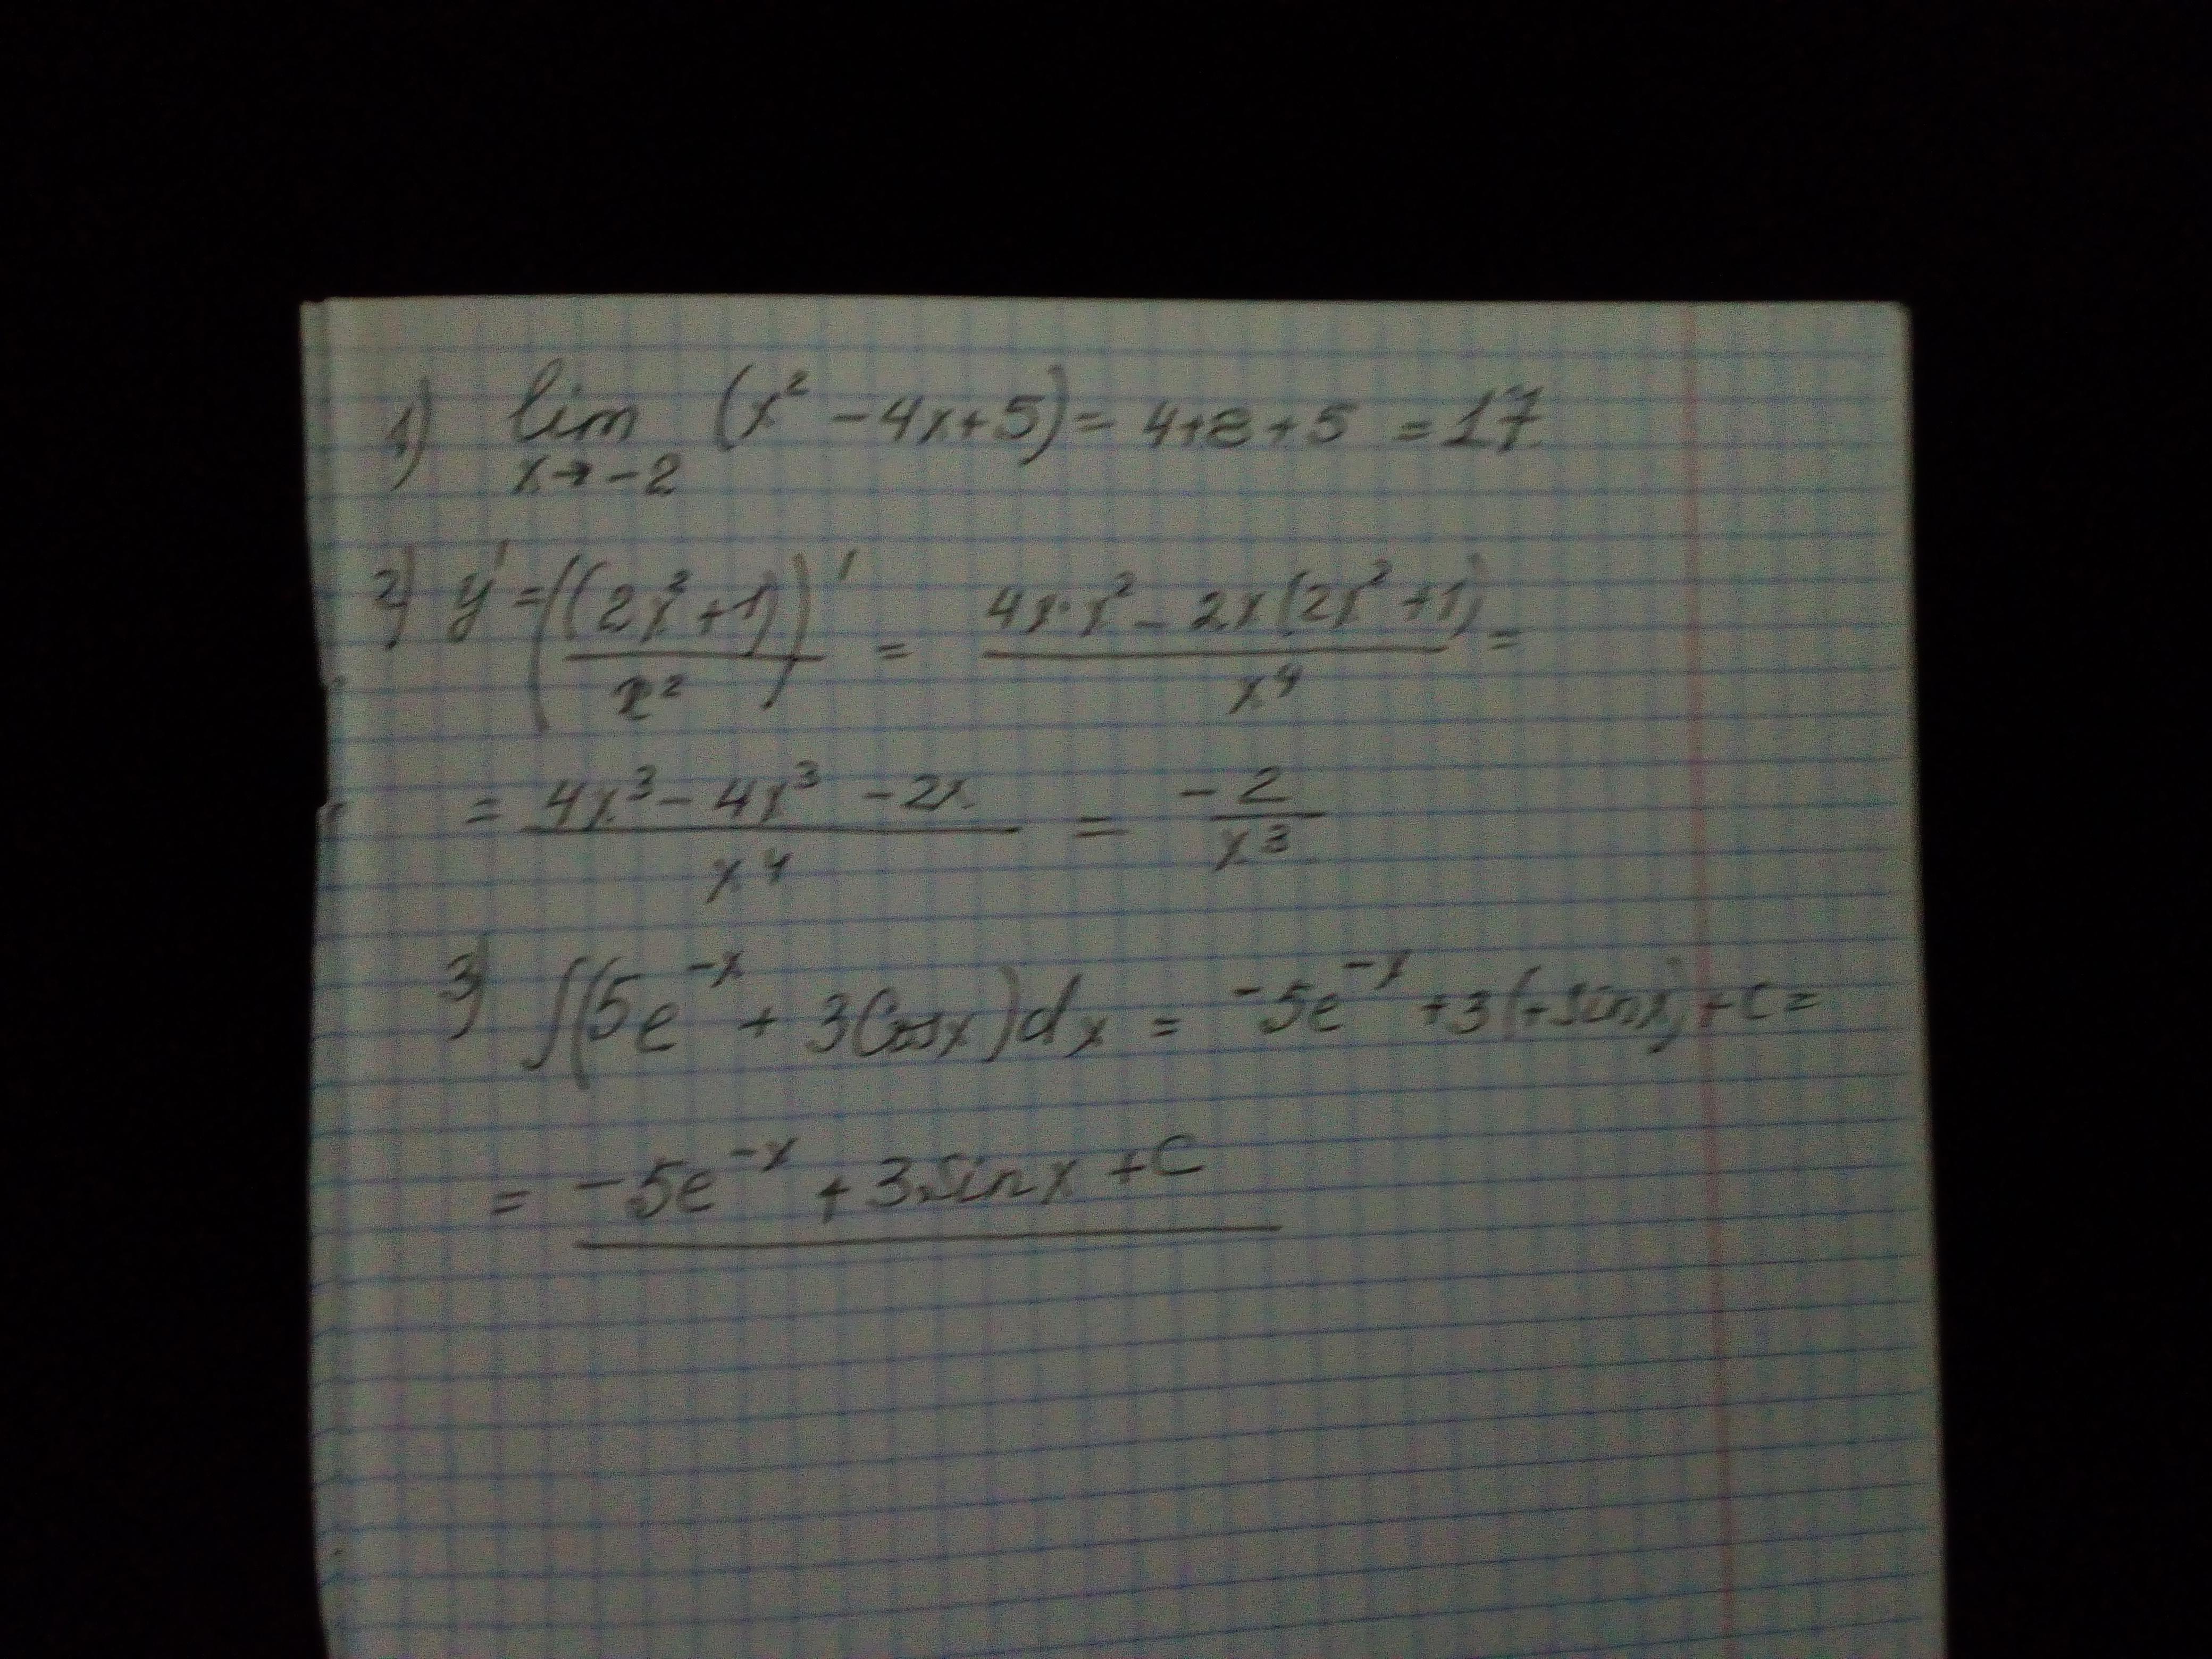 1) lim (x² - 4x + 5) = 4 + 8 + 5 = 17
x → -2
2) y' = ((2x² + 1) / x²)' = (4x · x² - 2x(2x² + 1)) / x⁴ =
= (4x³ - 4x³ - 2x) / x⁴ = -2 / x³
3) ∫(5e⁻ˣ + 3Cosx)dx = -5e⁻ˣ + 3(+sinx) + C =
= -5e⁻ˣ + 3sinx + C